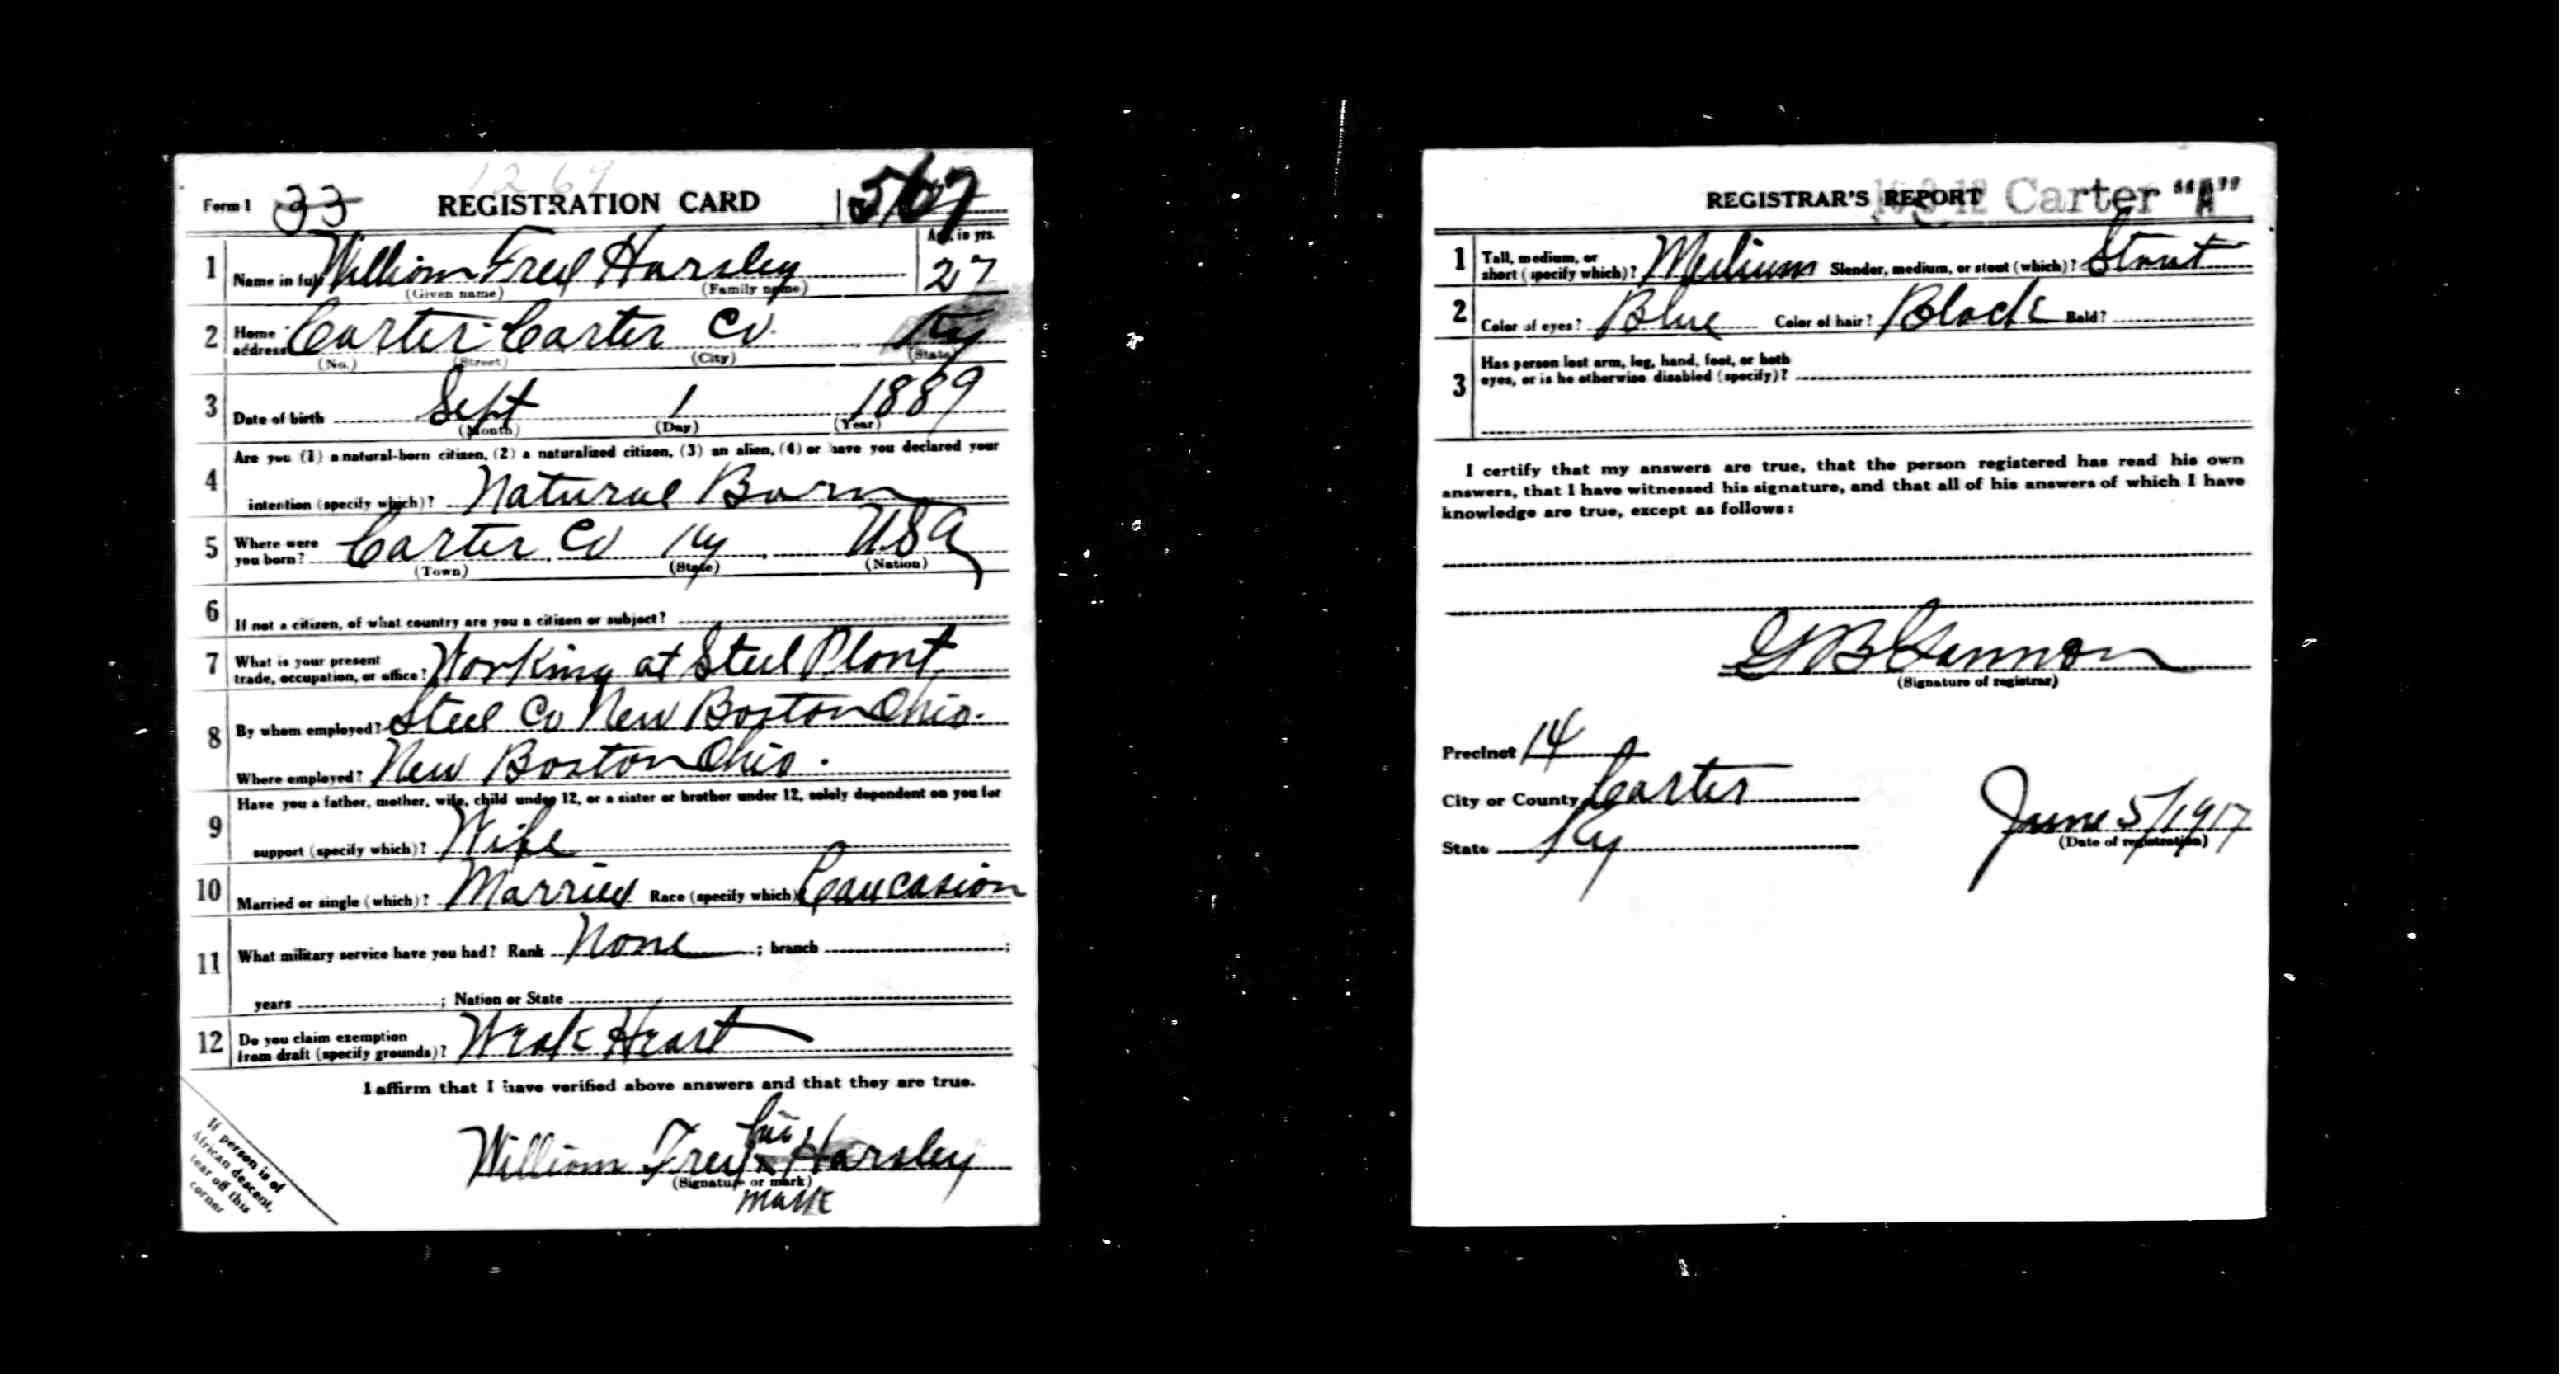 1269
Form 1 33 REGISTRATION CARD 567
1 Name in full William Fred Harsley Age, in yrs. 27
(Given name) (Family name)
2 Home address Carter Carter Co Ky
(No.) (Street) (City) (State)
3 Date of birth Sept 1 1889
(Month) (Day) (Year)
4 Are you (1) a natural-born citizen, (2) a naturalized citizen, (3) an alien, (4) or have you declared your
intention (specify which)? Natural Born
5 Where were you born? Carter Co Ky USA
(Town) (State) (Nation)
6 If not a citizen, of what country are you a citizen or subject?
7 What is your present trade, occupation, or office? Working at Steel Plant
8 By whom employed? Steel Co New Boston Ohio.
Where employed? New Boston Ohio.
9 Have you a father, mother, wife, child under 12, or a sister or brother under 12, solely dependent on you for
support (specify which)? Wife
10 Married or single (which)? Married Race (specify which) Caucasion
11 What military service have you had? Rank None ; branch ;
years ; Nation or State
12 Do you claim exemption from draft (specify grounds)? Weak Heart
I affirm that I have verified above answers and that they are true.
his
William Fred x Harsley
(Signature or mark)
mark
If person is of
African descent,
tear off this
corner
REGISTRAR'S REPORT Carter "A"
1 Tall, medium, or short (specify which)? Medium Slender, medium, or stout (which)? Stout
2 Color of eyes? Blue Color of hair? Black Bald?
3 Has person lost arm, leg, hand, foot, or both
eyes, or is he otherwise disabled (specify)?
I certify that my answers are true, that the person registered has read his own
answers, that I have witnessed his signature, and that all of his answers of which I have
knowledge are true, except as follows:
G B Gannon
(Signature of registrar)
Precinct 14
City or County Carter
State Ky
June 5/1917
(Date of registration)